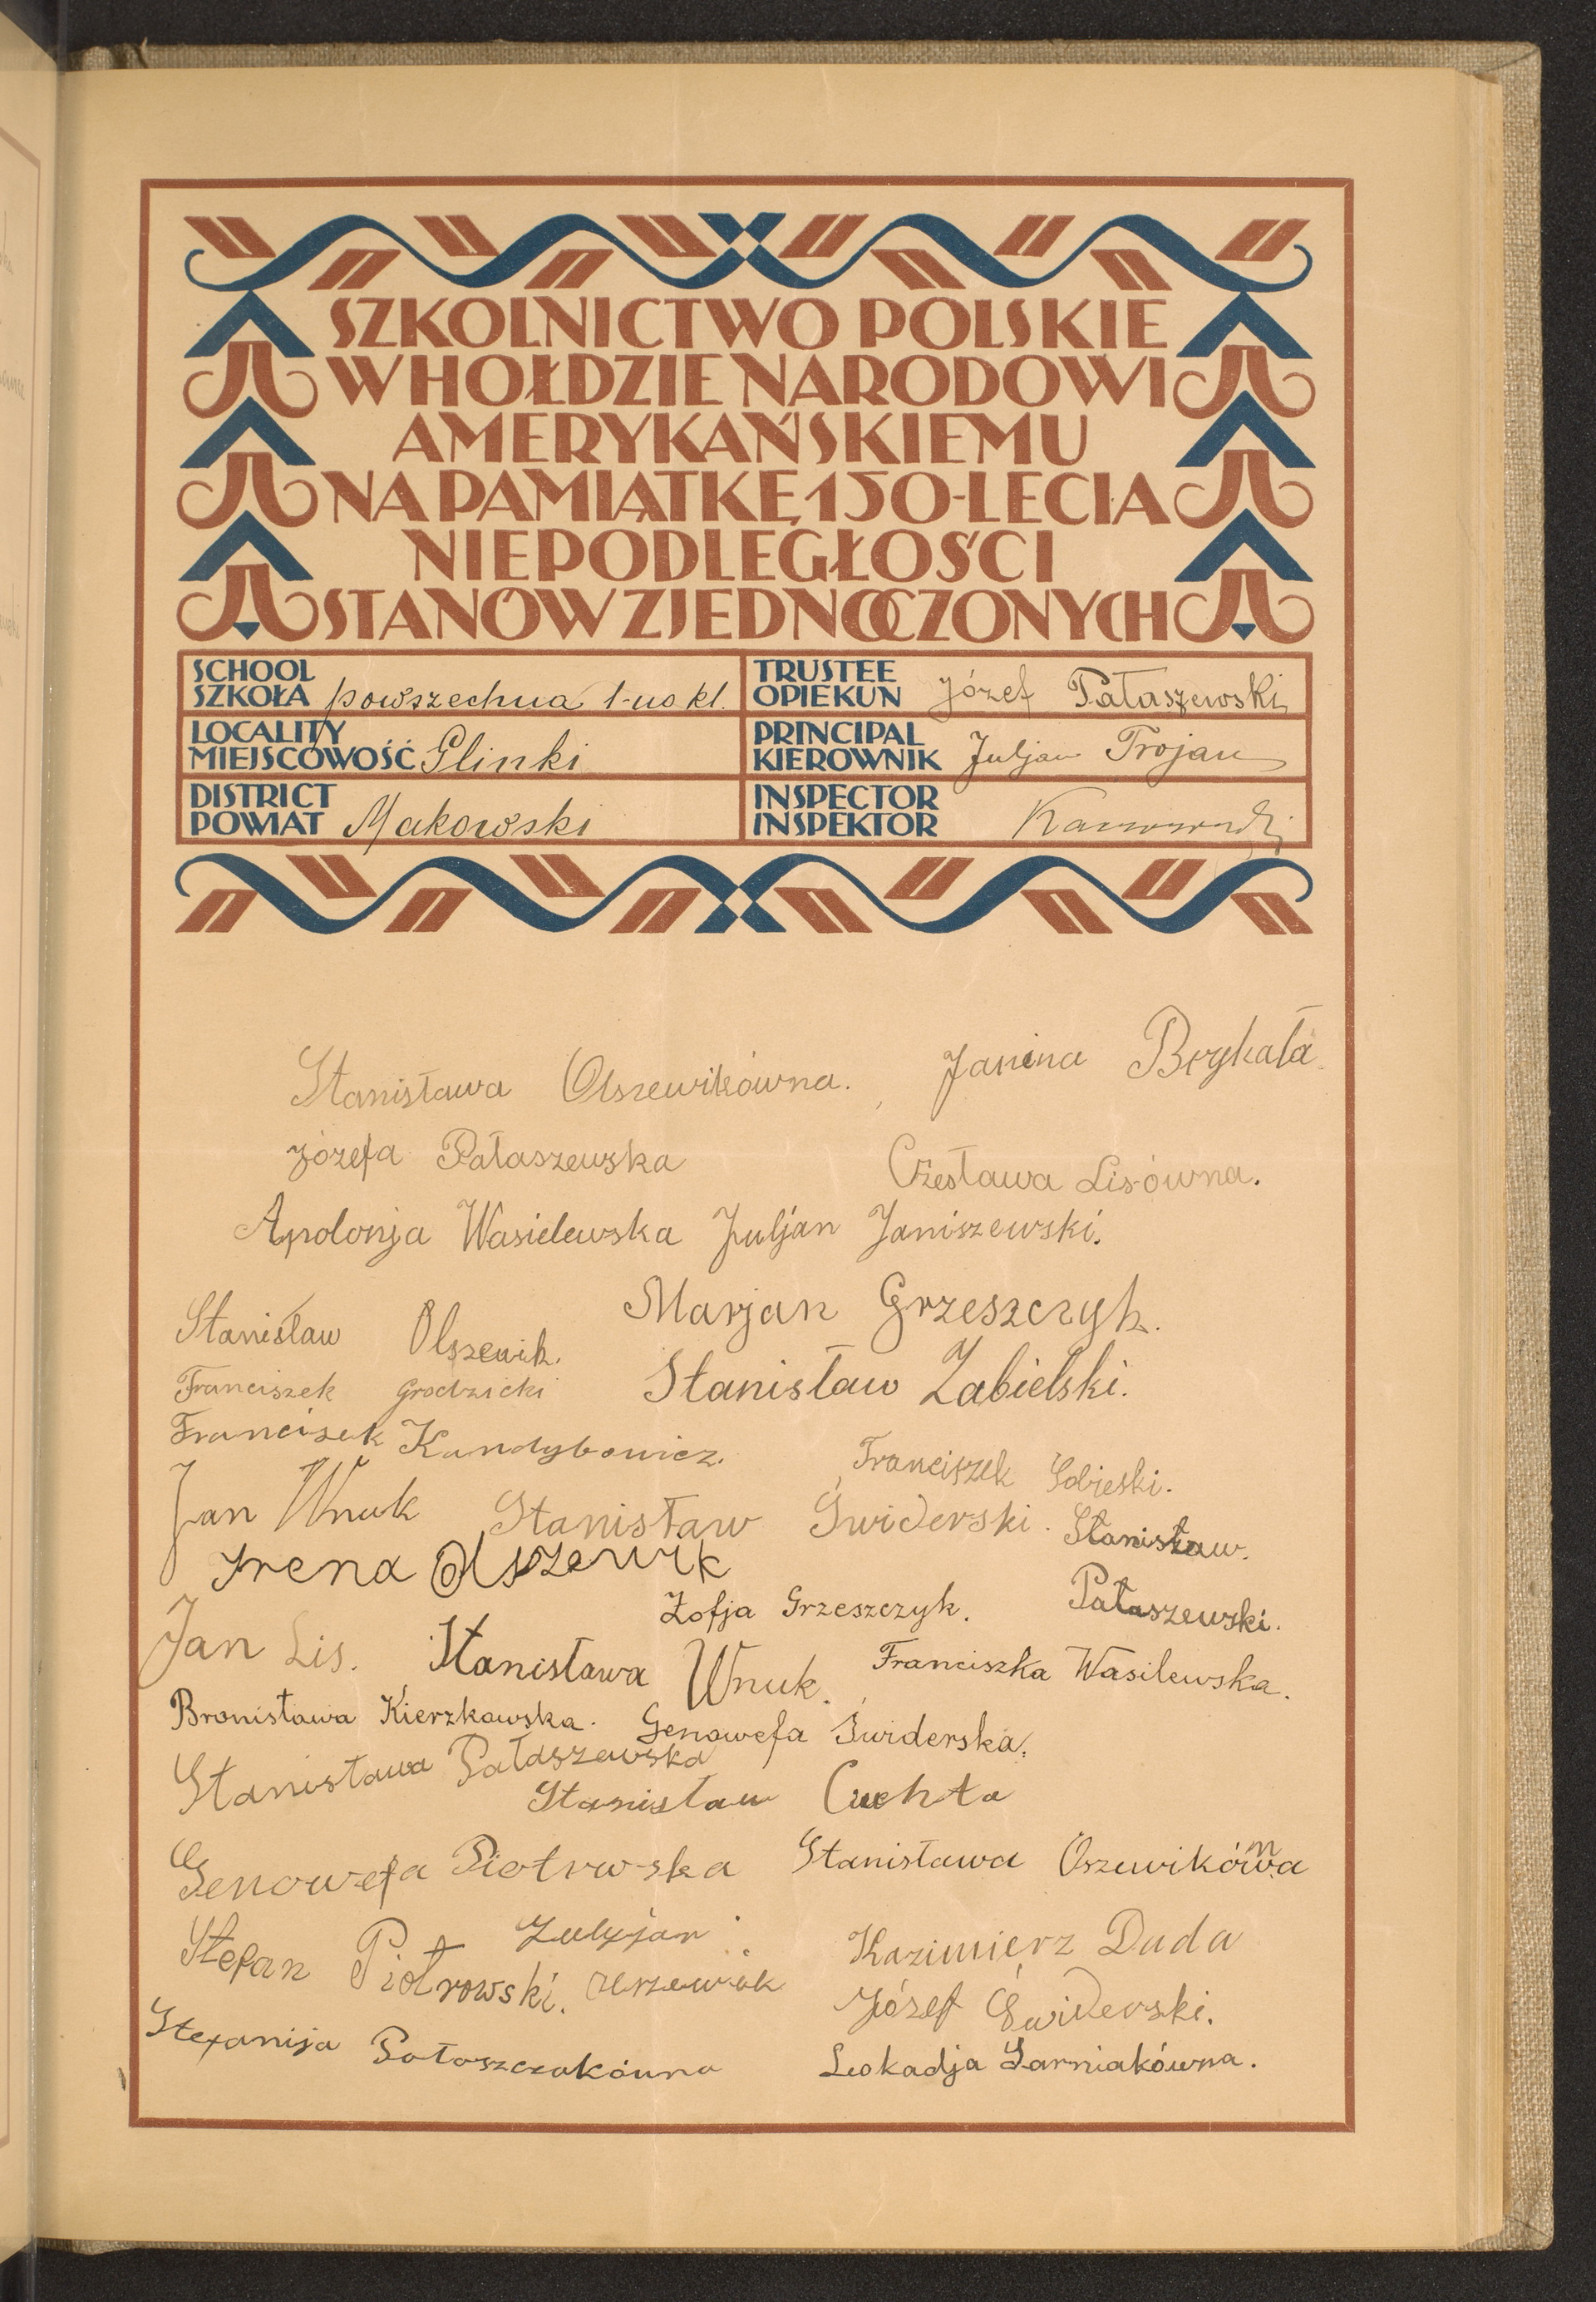 SZKOLNICTWO POLSKIE
W HOŁDZIE NARODOWI
AMERYKAŃSKIEMU
NA PAMIĄTKĘ 150-LECIA
NIEPODLEGŁOŚCI
STANÓW ZJEDNOCZONYCH
SCHOOL
SZKOŁA powszechna 1-no kl.
TRUSTEE
OPIEKUN Józef Pałaszewski
LOCALITY
MIEJSCOWOŚĆ Glinki
PRINCIPAL
KIEROWNIK Juljan Trojan
DISTRICT
POWIAT Makowski
INSPECTOR
INSPEKTOR
Stanisława Olszewikówna. Janina Brykała.
Józefa Pałaszewska Czesława Lisówna.
Apolonja Wasielewska Juljan Janiszewski.
Stanisław Olszewik. Marjan Grzeszczyk.
Franciszek Grodzicki Stanisław Zabielski.
Francisek Kandybowicz. Franciszek Sobieski.
Jan Wnuk Stanisław Świderski. Stanisław.
Irena Olszewik
Zofja Grzeszczyk. Pałaszewski.
Jan Lis. Stanisława Wnuk. Franciszka Wasilewska.
Bronisława Kierzkowska. Genowefa Świderska.
Stanisława Pałaszewska
Stanisław Cuchta
Genowefa Piotrwska Stanisława Oszewikówna
Stefan Piotrowski. Kazimierz Duda
Józef Świderski.
Stefanija Pałaszczakówna Leokadja Garniakówna.